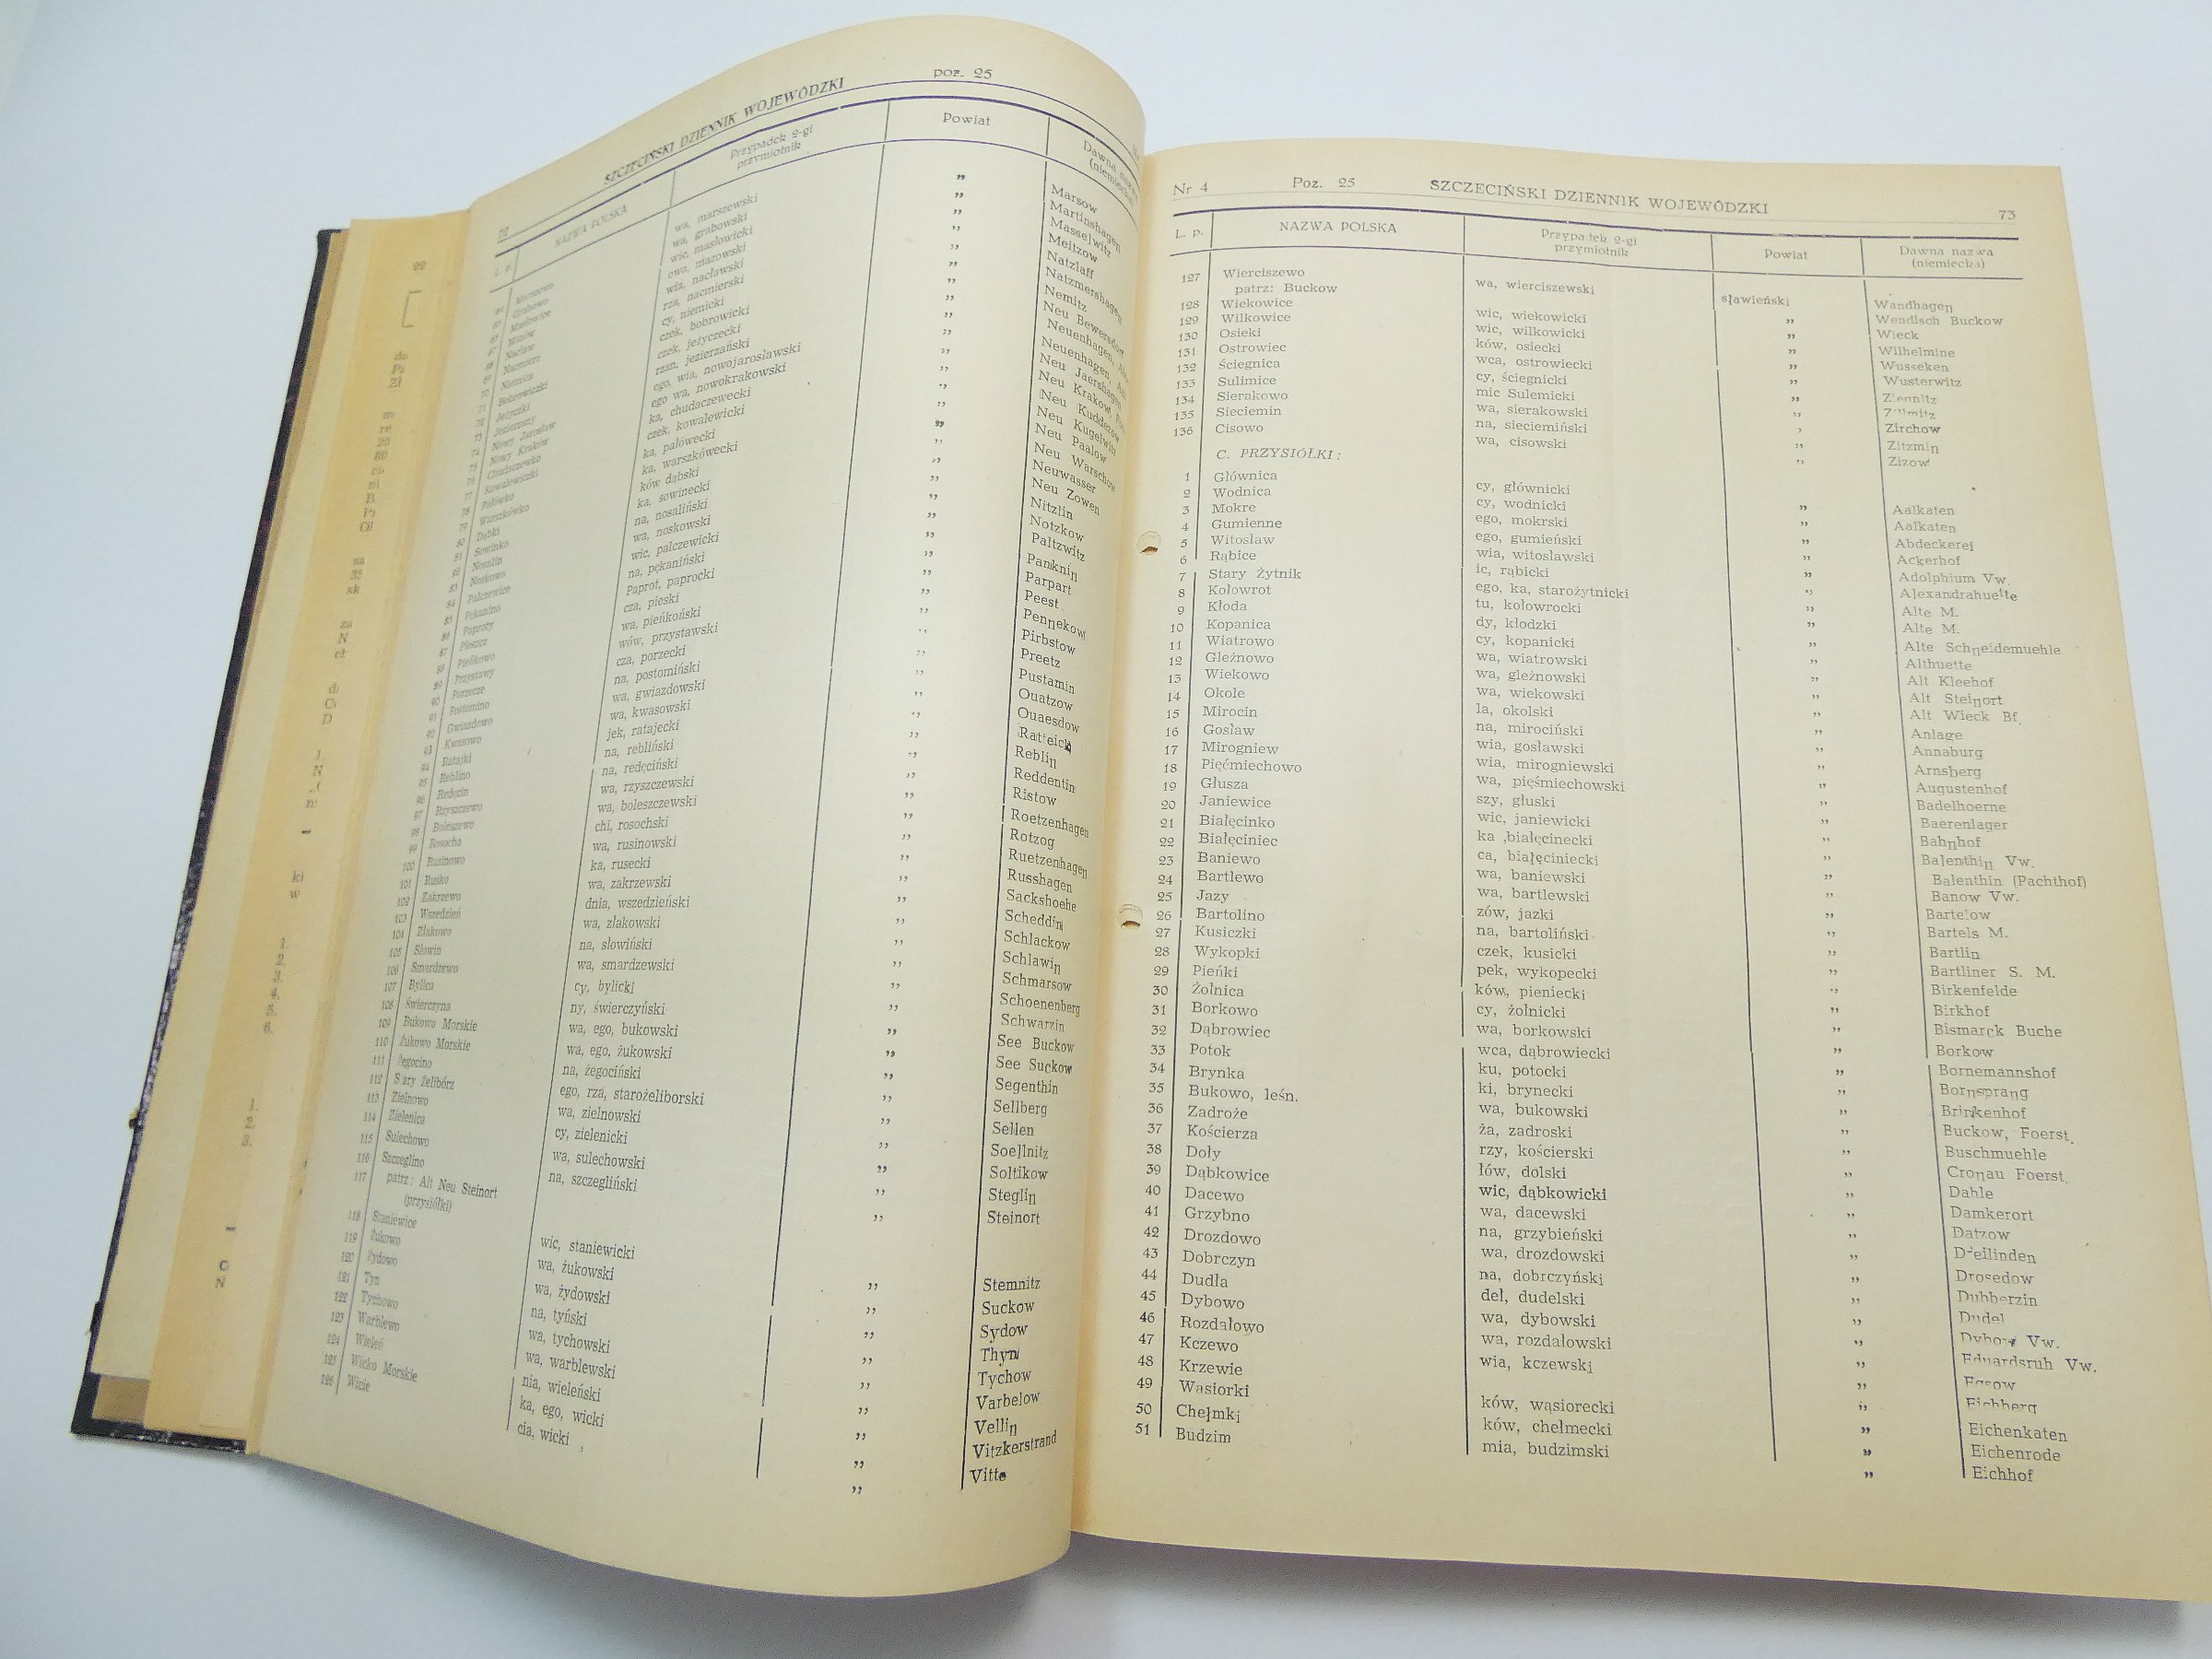 SZCZECIŃSKI DZIENNIK WOJEWÓDZKI poz. 25
NAZWA POLSKA Przypadek 2-gi przymiotnik Powiat
wa, marszewski „ Marsow
wa, grabowski „ Martinshagen
wic, masłowicki „ Masselwitz
owa, mazowski „ Meitzow
wia, nacławski „ Natzlaff
rza, nacmierski „ Natzmershagen
cy, niemicki „ Nemitz
czek, bobrowicki „ Neu Bewersdorf
czek, jeżyczecki „ Neuenhagen,
rzan, jezierzański „ Neuenhagen,
ego, wia, nowojarosławski „ Neu Jaershagen
ego wa, nowokrakowski „ Neu Krakow
ka, chudaczewecki „ Neu Kuddezow
czek, kowalewicki „ Neu Kugelwitz
ka, pałówecki „ Neu Paalow
ka, warszkówecki „ Neu Warschow
80 Dąbki ków dąbski „ Neuwasser
81 Sowinko ka, sowinecki „ Neu Zowen
82 Nosalin na, nosaliński „ Nitzlin
83 Noskowo wa, noskowski „ Notzkow
84 Palczewice wic, palczewicki „ Paltzwitz
85 Pękanino na, pękaniński „ Panknin
86 Paproty Paprot, paprocki „ Parpart
87 Pieszcz cza, pieski „ Peest
88 Pieńkowo wa, pieńkoński „ Pennekow
89 Przystawy wów, przystawski „ Pirbstow
90 Porzecze cza, porzecki „ Preetz
91 Postomino na, postomiński „ Pustamin
92 Gwiazdowo wa, gwiazdowski „ Quatzow
93 Kwasowo wa, kwasowski „ Quaesdow
94 Ratajki jek, ratajecki „ Ratteick
95 Reblino na, rebliński „ Reblin
96 Redęcin na, redęciński „ Reddentin
97 Rzyszczewo wa, rzyszczewski „ Ristow
98 Boleszewo wa, boleszczewski „ Roetzenhagen
99 Rosocha chi, rosochski „ Rotzog
100 Rusinowo wa, rusinowski „ Ruetzenhagen
101 Rusko ka, rusecki „ Russhagen
102 Zakrzewo wa, zakrzewski „ Sackshoehe
103 Wszedzień dnia, wszedzieński „ Scheddin
104 Złakowo wa, złakowski „ Schlackow
105 Słowin na, słowiński „ Schlawin
106 Smardzewo wa, smardzewski „ Schmarsow
107 Bylica cy, bylicki „ Schoenenberg
108 Świerczyna ny, świerczyński „ Schwarzin
109 Bukowo Morskie wa, ego, bukowski „ See Buckow
110 Żukowo Morskie wa, ego, żukowski „ See Suckow
111 Żegocino na, żegociński „ Segenthin
112 Stary Żelibórz ego, rza, starożeliborski „ Sellberg
113 Zielnowo wa, zielnowski „ Sellen
114 Zielenica cy, zielenicki „ Soellnitz
115 Sulechowo wa, sulechowski „ Soltikow
116 Szczeglino na, szczegliński „ Steglin
117 patrz: Alt Neu Steinort „ Steinort
(przysiółki)
118 Staniewice wic, staniewicki „ Stemnitz
119 Żukowo wa, żukowski „ Suckow
120 Żydowo wa, żydowski „ Sydow
121 Tyn na, tyński „ Thyn
122 Tychowo wa, tychowski „ Tychow
123 Warblewo wa, warblewski „ Varbelow
124 Wieleń nia, wieleński „ Vellin
125 Wicko Morskie ka, ego, wicki „ Vitzkerstrand
126 Wicie cia, wicki „ Vitte
Nr 4 Poz. 25 SZCZECIŃSKI DZIENNIK WOJEWÓDZKI 73
L. p. NAZWA POLSKA Przypadek 2-gi przymiotnik Powiat Dawna nazwa (niemiecka)
127 Wierciszewo wa, wierciszewski sławieński Wandhagen
patrz: Buckow „ Wendisch Buckow
128 Wiekowice wic, wiekowicki „ Wieck
129 Wilkowice wic, wilkowicki „ Wilhelmine
130 Osieki ków, osiecki „ Wusseken
131 Ostrowiec wca, ostrowiecki „ Wusterwitz
132 Ściegnica cy, ściegnicki „ Ziegnitz
133 Sulimice mic Sulemicki „ Zillmitz
134 Sierakowo wa, sierakowski „ Zirchow
135 Sieciemin na, sieciemiński „ Zitzmin
136 Cisowo wa, cisowski „ Zizow
C. PRZYSIÓŁKI:
1 Głównica cy, głównicki „ Aalkaten
2 Wodnica cy, wodnicki „ Aalkaten
3 Mokre ego, mokrski „ Abdeckerei
4 Gumienne ego, gumieński „ Ackerhof
5 Witosław wia, witosławski „ Adolphium Vw.
6 Rąbice ic, rąbicki „ Alexandrahuette
7 Stary Żytnik ego, ka, starożytnicki „ Alte M.
8 Kołowrot tu, kołowrocki „ Alte M.
9 Kłoda dy, kłodzki „ Alte Schneidemuehle
10 Kopanica cy, kopanicki „ Althuette
11 Wiatrowo wa, wiatrowski „ Alt Kleehof
12 Gleźnowo wa, gleźnowski „ Alt Steinort
13 Wiekowo wa, wiekowski „ Alt Wieck Bf.
14 Okole la, okolski „ Anlage
15 Mirocin na, mirociński „ Annaburg
16 Gosław wia, gosławski „ Arnsberg
17 Mirogniew wia, mirogniewski „ Augustenhof
18 Pięćmiechowo wa, pięśmiechowski „ Badelhoerne
19 Głusza szy, głuski „ Baerenlager
20 Janiewice wic, janiewicki „ Bahnhof
21 Białęcinko ka ,białęcinecki „ Balenthin Vw.
22 Białęciniec ca, białęciniecki „ Balenthin (Pachthof)
23 Baniewo wa, baniewski „ Banow Vw.
24 Bartlewo wa, bartlewski „ Bartelow
25 Jazy zów, jazki „ Bartels M.
26 Bartolino na, bartoliński „ Bartlin
27 Kusiczki czek, kusicki „ Bartliner S. M.
28 Wykopki pek, wykopecki „ Birkenfelde
29 Pieńki ków, pieniecki „ Birkhof
30 Żolnica cy, żolnicki „ Bismarck Buche
31 Borkowo wa, borkowski „ Borkow
32 Dąbrowiec wca, dąbrowiecki „ Bornemannshof
33 Potok ku, potocki „ Bornsprang
34 Brynka ki, brynecki „ Brinkenhof
35 Bukowo, leśn. wa, bukowski „ Buckow, Foerst.
36 Zadroże ża, zadroski „ Buschmuehle
37 Kościerza rzy, kościerski „ Cronau Foerst.
38 Doły łów, dolski „ Dahle
39 Dąbkowice wic, dąbkowicki „ Damkerort
40 Dacewo wa, dacewski „ Datzow
41 Grzybno na, grzybieński „ Dreilinden
42 Drozdowo wa, drozdowski „ Drosedow
43 Dobrczyn na, dobrczyński „ Dubberzin
44 Dudła deł, dudelski „ Dudel
45 Dybowo wa, dybowski „ Dybow Vw.
46 Rozdałowo wa, rozdałowski „ Eduardsruh Vw.
47 Kczewo wia, kczewski „ Egsow
48 Krzewie „ Eichberg
49 Wąsiorki ków, wąsiorecki „ Eichenkaten
50 Chełmki ków, chełmecki „ Eichenrode
51 Budzim mia, budzimski „ Eichhof